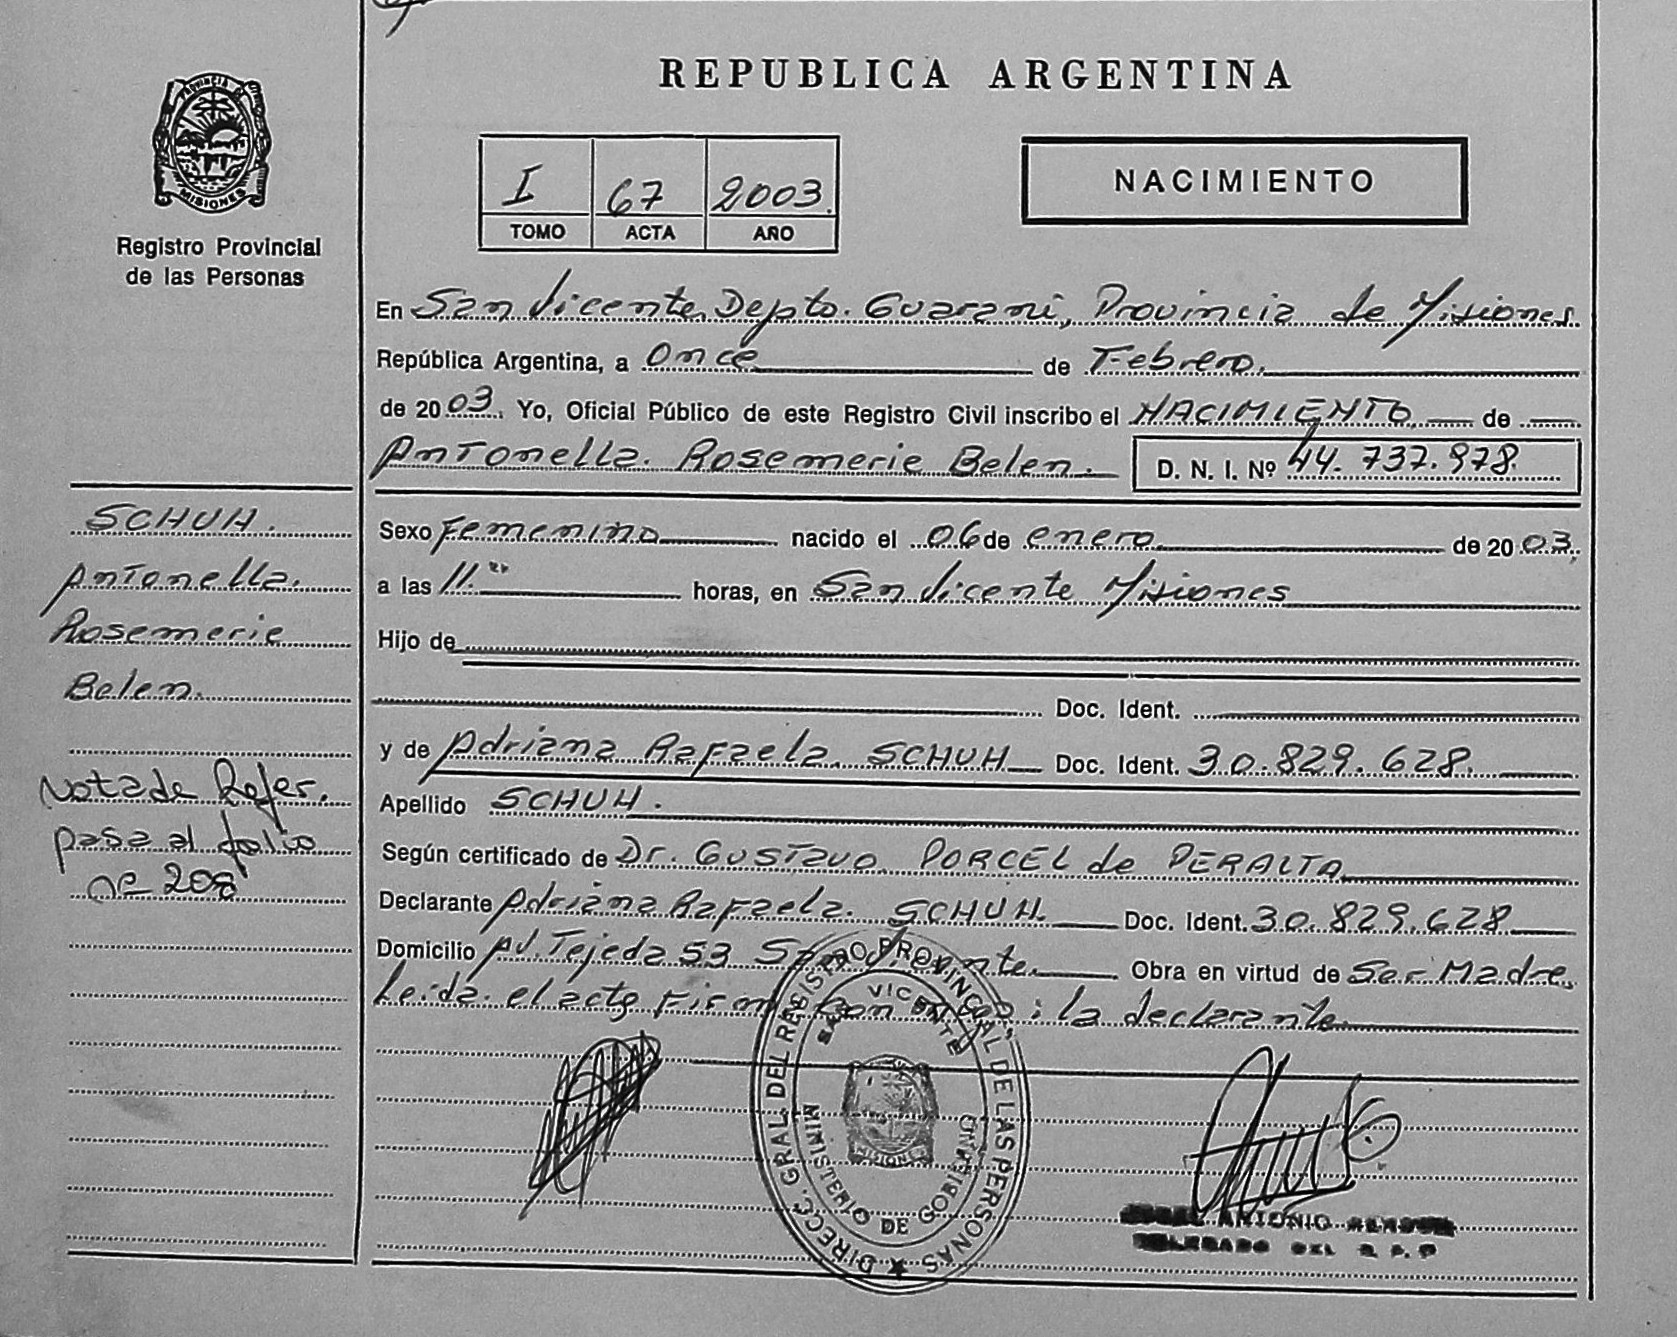 REPUBLICA ARGENTINA
PROVINCIA DE
MISIONES
Registro Provincial
de las Personas
I 67 2003.
TOMO ACTA AÑO
NACIMIENTO
En San Vicente, Depto. Guarani, Provincia de Misiones
República Argentina, a Once de Febrero.
de 2003. Yo, Oficial Público de este Registro Civil inscribo el NACIMIENTO de
Antonella Rosemerie Belen. D. N. I. Nº 44.737.978.
Sexo Femenino nacido el 06 de enero de 2003.
a las 11. horas, en San Vicente Misiones
Hijo de
Doc. Ident.
y de Adriana Rafaela SCHUH Doc. Ident. 30.829.628.
Apellido SCHUH.
Según certificado de Dr. Gustavo PORCEL de PERALTA
Declarante Adriana Rafaela SCHUH. Doc. Ident. 30.829.628
Domicilio Av. Tejeda 53 San Vicente. Obra en virtud de Ser Madre.
Leida el acta Firman con : la declarante.
SCHUH.
Antonella.
Rosemerie
Belen.
Nota de Refer.
pasa al folio
nº 208
DIRECC. GRAL. DEL REGISTRO PROVINCIAL DE LAS PERSONAS
SAN VICENTE
MISIONES
MINISTERIO DE GOBIERNO
ANTONIO
DELEGADO DEL R.P.P